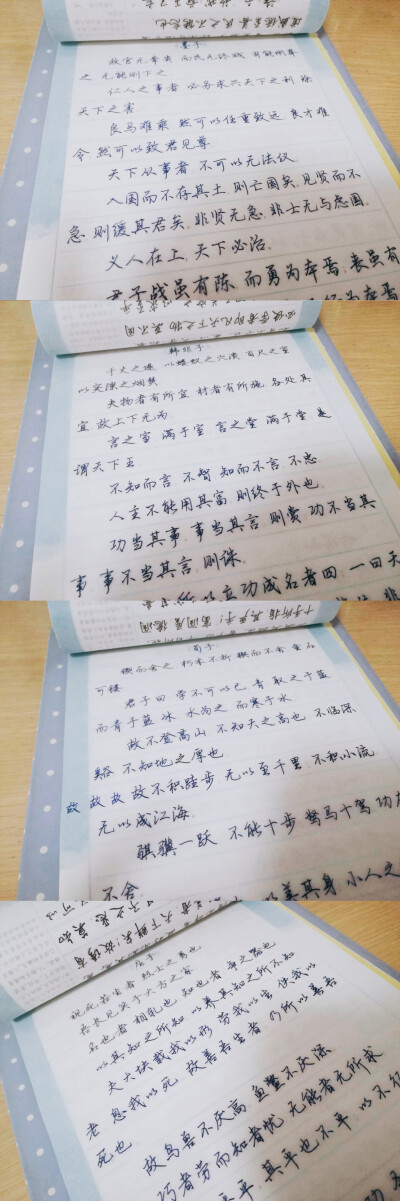 墨子
故官无常贵 而民无终贱 有能则举
之 无能则下之
仁人之事者 必务求兴天下之利 除
天下之害
良马难乘 然可以任重致远 良才难
令 然可以致君见尊
天下从事者 不可以无法仪
入国而不存其士 则亡国矣 见贤而不
急 则缓其君矣 非贤无急 非士无与虑国
义人在上 天下必治
君子战虽有陈 而勇为本焉 丧虽有
韩非子
千丈之堤 以蝼蚁之穴溃 百尺之室
以突隙之烟焚
夫物者有所宜 材者有所施 各处其
宜 故上下无为
言之室 满于室 言之堂 满于堂 是
谓天下王
不知而言 不智 知而不言 不忠
人主不能用其富 则终于外也
功当其事 事当其言 则赏 功不当其
事 事不当其言 则诛
立功成名者四 一曰天
荀子
锲而舍之 朽木不折 锲而不舍 金石
可镂
君子曰 学不可以已 青 取之于蓝
而青于蓝 冰 水为之 而寒于水
故不登高山 不知天之高也 不临深
谿 不知地之厚也
故 故 故 故不积跬步 无以至千里 不积小流
无以成江海
骐骥一跃 不能十步 驽马十驾 功在
不舍
以美其身 小人之
庄子
视死若生者 烈士之勇也
吾长见笑于大方之家
名也者 相轧也 知也者 争之器也
以其知之所知 以养其知之所不知
夫大块载我以形 劳我以生 佚我以
老 息我以死 故善吾生者 乃所以善吾
死也
故鸟兽不厌高 鱼鳖不厌深
巧者劳而知者忧 无能者无所求
平 其平也不平 以不